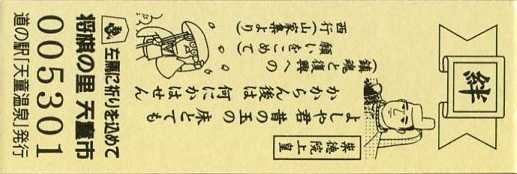 絆
崇徳院上皇
よしや君昔の玉の床とても
かからん後は何にかはせん
(鎮魂と復興への
願いをこめて)
西行(山家集より)
左馬に祈りを込めて
将棋の里 天童市
005301
道の駅「天童温泉」発行